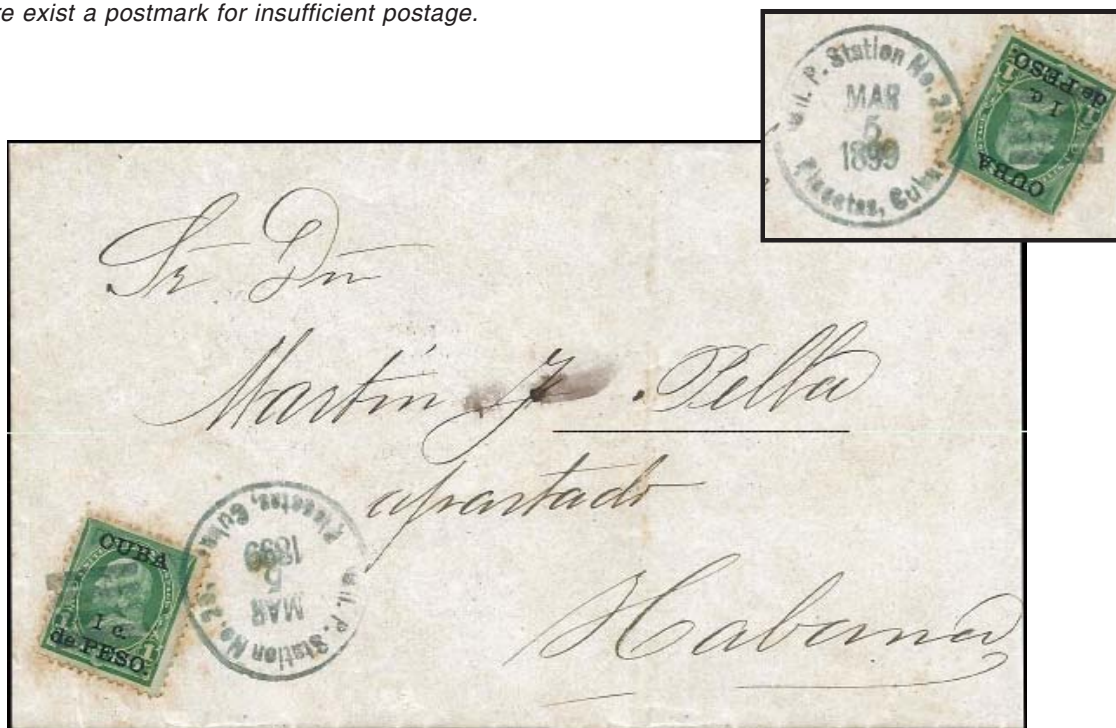 exist a postmark for insufficient postage.
Mil. P. Station No.
MAR
5
1899
Placetas, Cuba.
CUBA
1 c.
de PESO.
1
Sr. Dn
Martin J. Pella
apartado
Habana
CUBA
1 c.
de PESO.
1
Mil. P. Station No.
MAR
5
1899
Placetas, Cuba.